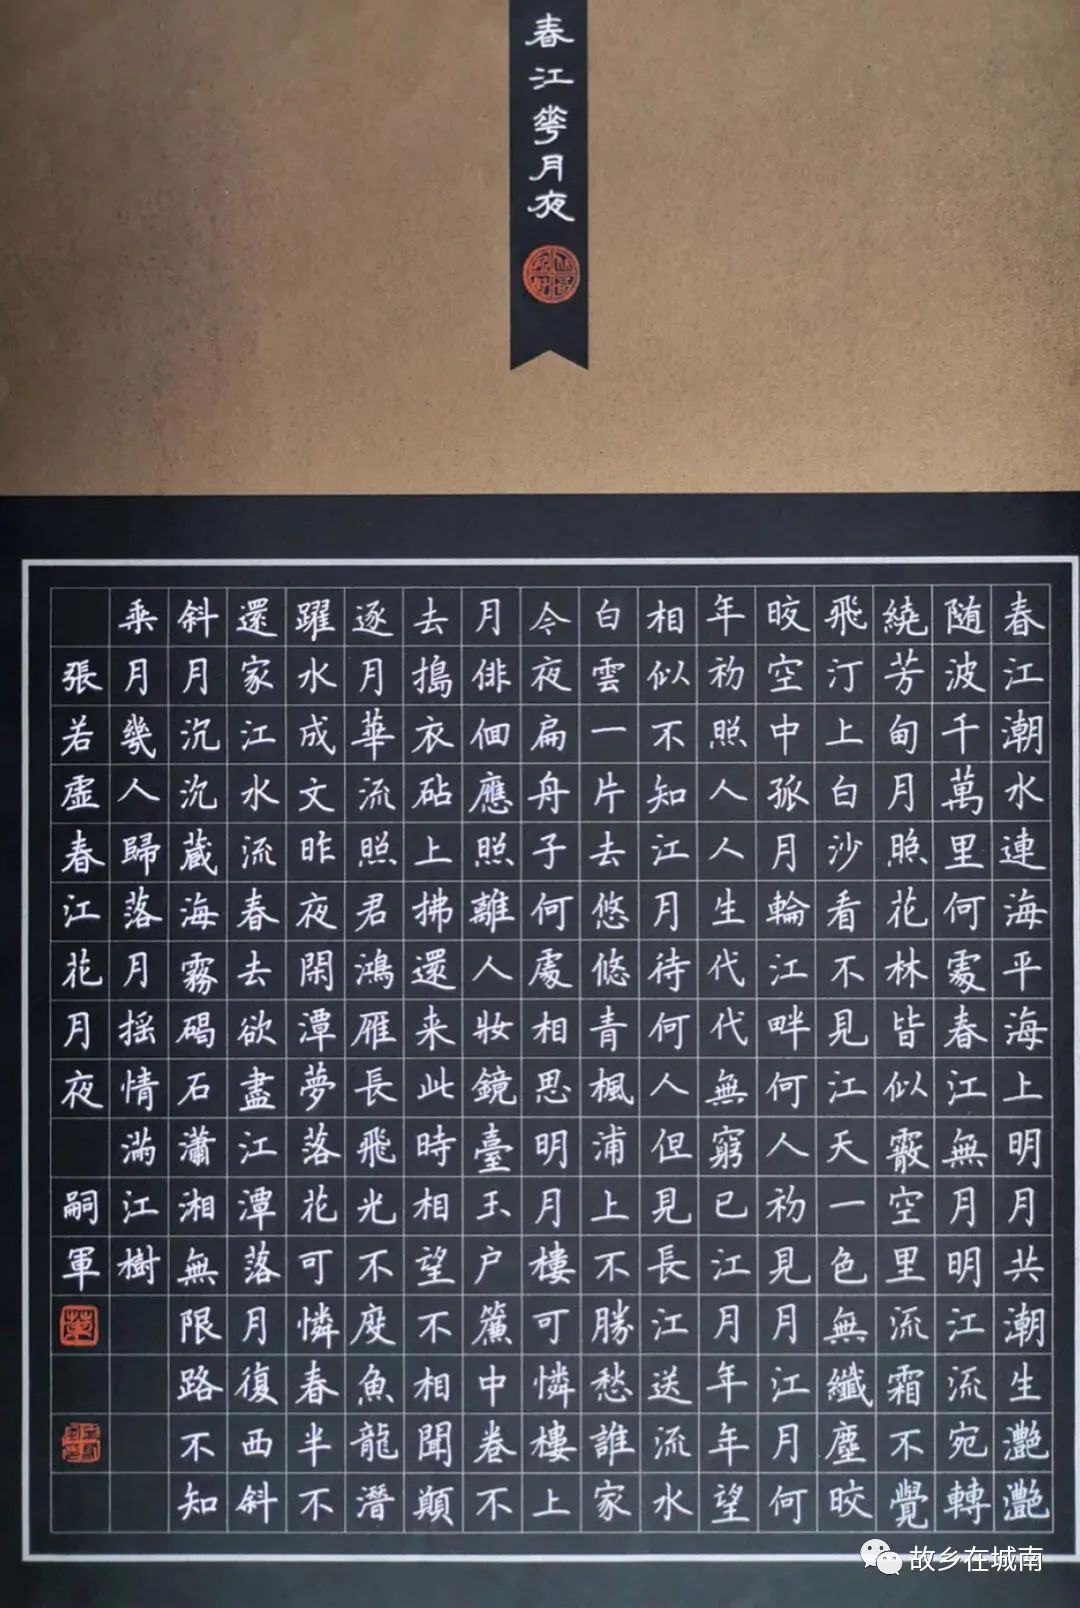 春江花月夜
春江潮水連海平海上明月共潮生灔灔
随波千萬里何處春江無月明江流宛轉
繞芳甸月照花林皆似霰空里流霜不覺
飛汀上白沙看不見江天一色無纖塵皎
皎空中孤月輪江畔何人初見月江月何
年初照人人生代代無窮已江月年年望
相似不知江月待何人但見長江送流水
白雲一片去悠悠青楓浦上不勝愁誰家
今夜扁舟子何處相思明月樓可憐樓上
月俳佪應照離人妝鏡臺玉户簾中卷不
去搗衣砧上拂還来此時相望不相聞願
逐月華流照君鴻雁長飛光不度魚龍潛
躍水成文昨夜閑潭夢落花可憐春半不
還家江水流春去欲盡江潭落月復西斜
斜月沉沉藏海霧碣石瀟湘無限路不知
乘月幾人歸落月揺情滿江樹
張若虛春江花月夜 嗣軍
故乡在城南